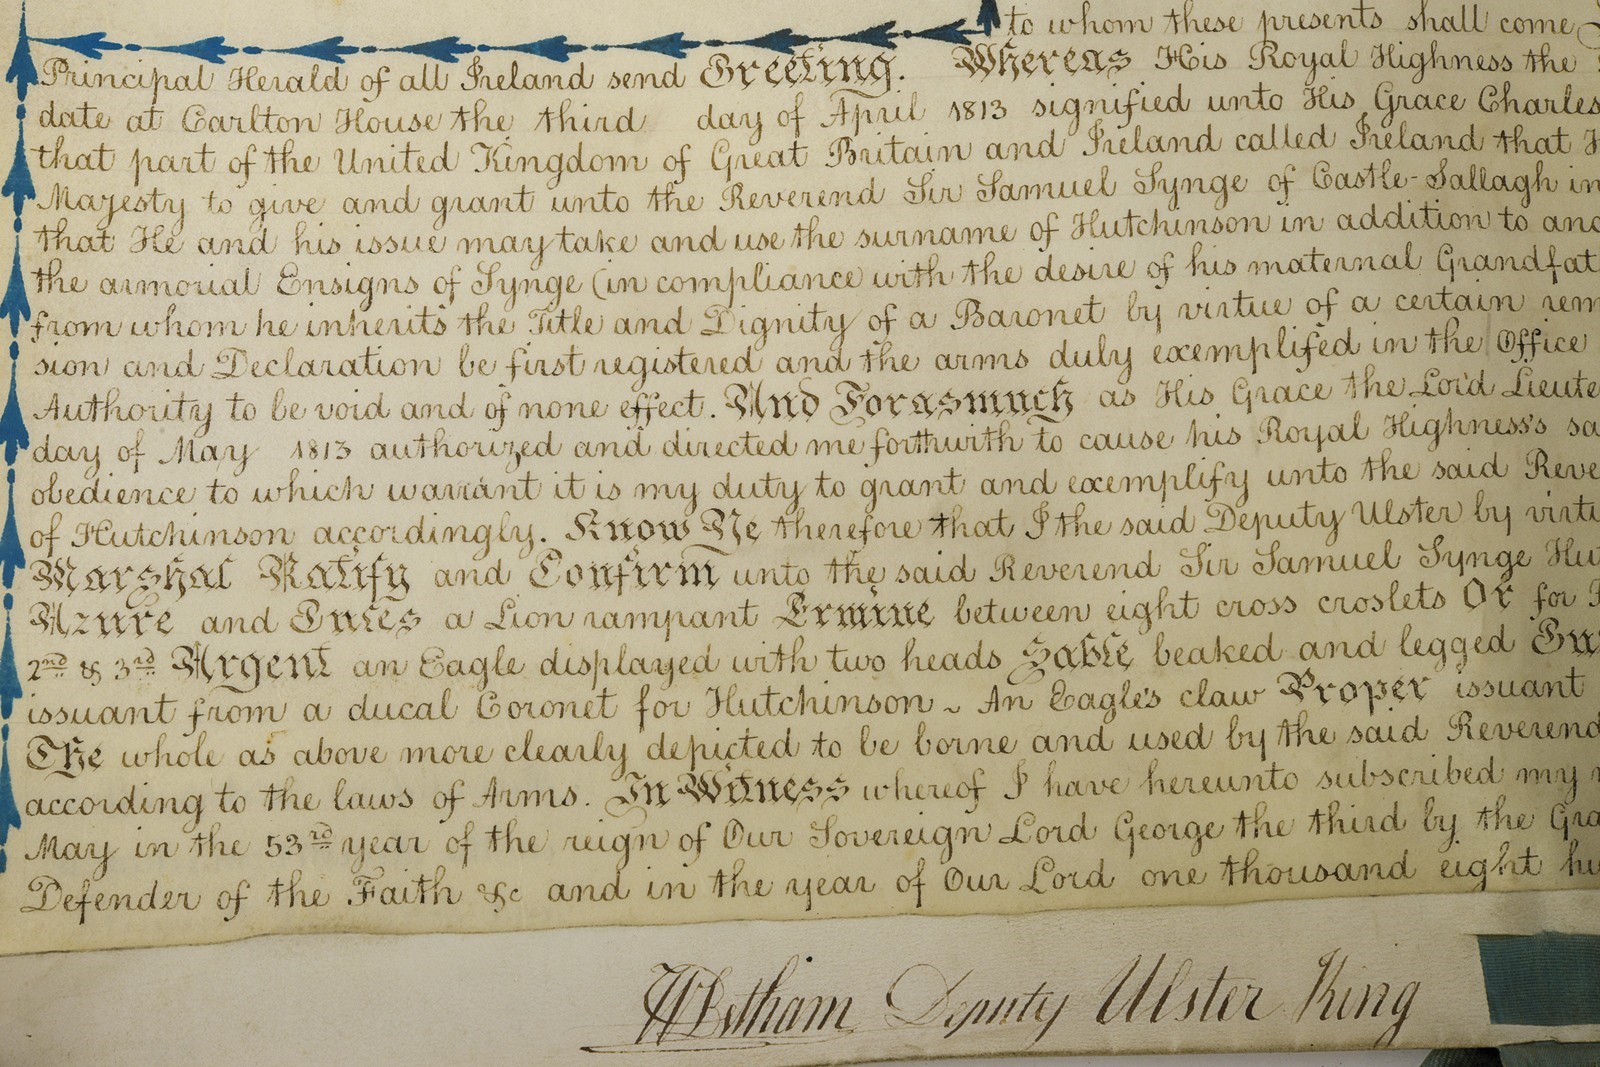 to whom these presents shall come
Principal Herald of all Ireland send Greeting. Whereas His Royal Highness the
date at Carlton House the third day of April 1813 signified unto His Grace Charles
that part of the United Kingdom of Great Britain and Ireland called Ireland that
Majesty to give and grant unto the Reverend Sir Samuel Synge of Castle-Sallagh in
that He and his issue may take and use the surname of Hutchinson in addition to and
the armorial Ensigns of Synge (in compliance with the desire of his maternal Grandfat
from whom he inherits the Title and Dignity of a Baronet by virtue of a certain rem
sion and Declaration be first registered and the arms duly exemplified in the Office
Authority to be void and of none effect. And Forasmuch as His Grace the Lord Lieute
day of May 1813 authorized and directed me forthwith to cause his Royal Highness's sa
obedience to which warrant it is my duty to grant and exemplify unto the said Reve
of Hutchinson accordingly. Know Ye therefore that I the said Deputy Ulster by virtu
Marshal Ratify and Confirm unto the said Reverend Sir Samuel Synge Hut
Azure and Gules a Lion rampant Ermine between eight cross croslets Or for
2nd & 3rd Argent an Eagle displayed with two heads Sable beaked and legged Gu
issuant from a ducal Coronet for Hutchinson ~ An Eagle's claw Proper issuant
The whole as above more clearly depicted to be borne and used by the said Reverend
according to the laws of Arms. In Witness whereof I have hereunto subscribed my
May in the 53rd year of the reign of Our Sovereign Lord George the third by the Gra
Defender of the Faith &c and in the year of Our Lord one thousand eight hu
WBetham Deputy Ulster King